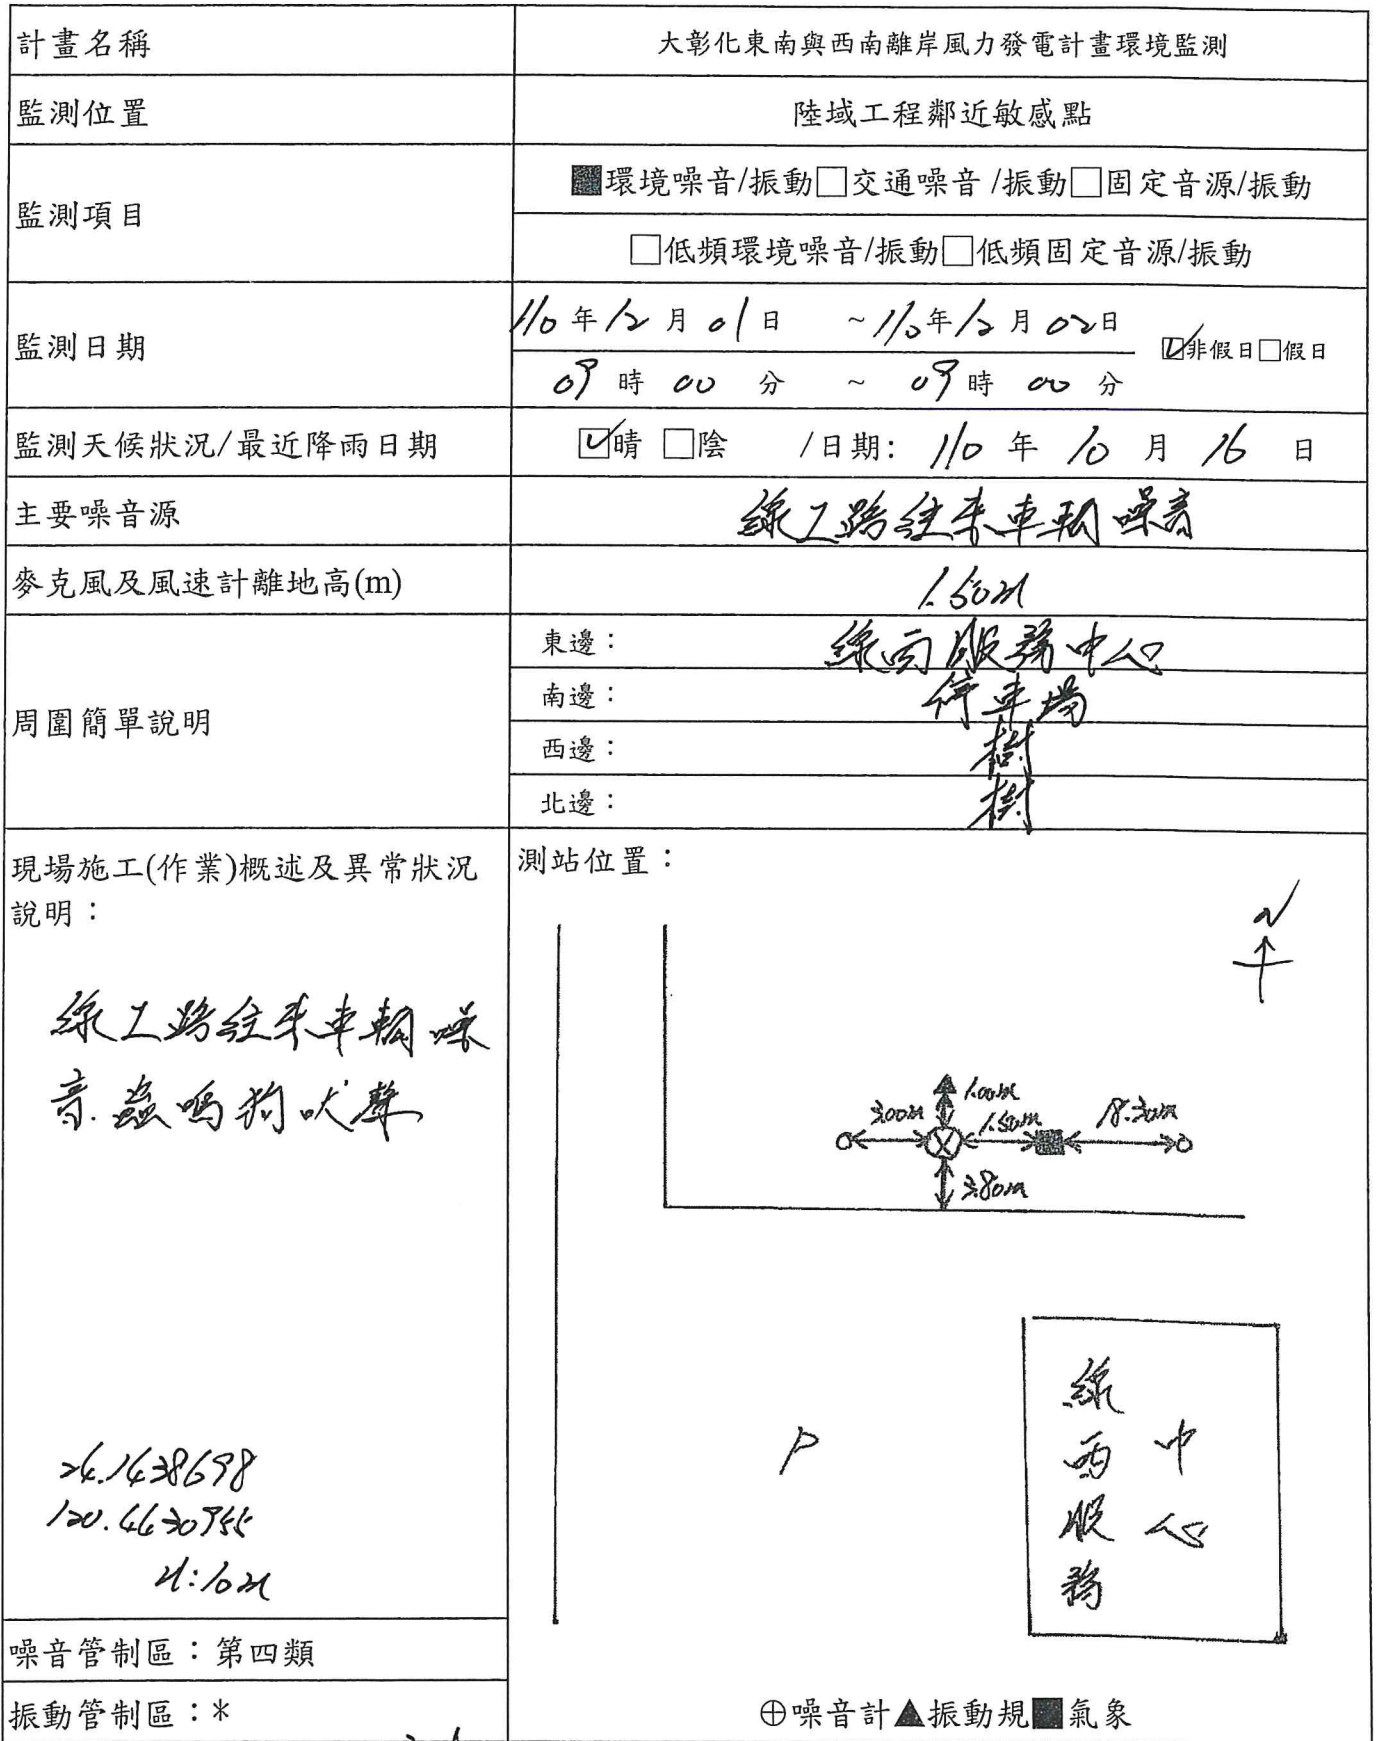 計畫名稱 大彰化東南與西南離岸風力發電計畫環境監測
監測位置 陸域工程鄰近敏感點
監測項目
■環境噪音/振動□交通噪音 /振動□固定音源/振動
□低頻環境噪音/振動□低頻固定音源/振動
監測日期
110年12月01日 ~110年12月02日
☑非假日□假日
09時00分 ~ 09時00分
監測天候狀況/最近降雨日期 ☑晴 □陰 /日期: 110年10月16日
主要噪音源 線工路往來車輛噪音
麥克風及風速計離地高(m) 1.50m
周圍簡單說明
東邊: 線西服務中心
南邊: 停車場
西邊: 樹
北邊: 樹
現場施工(作業)概述及異常狀況
說明:
線工路往來車輛噪
音.蟲鳴狗吠聲
24.1438698
120.4430955
H:10m
噪音管制區:第四類
振動管制區:*
測站位置:
N
1.00m
3.00m
1.50m
18.30m
3.80m
P
線西服務
中心
⊕噪音計▲振動規■氣象